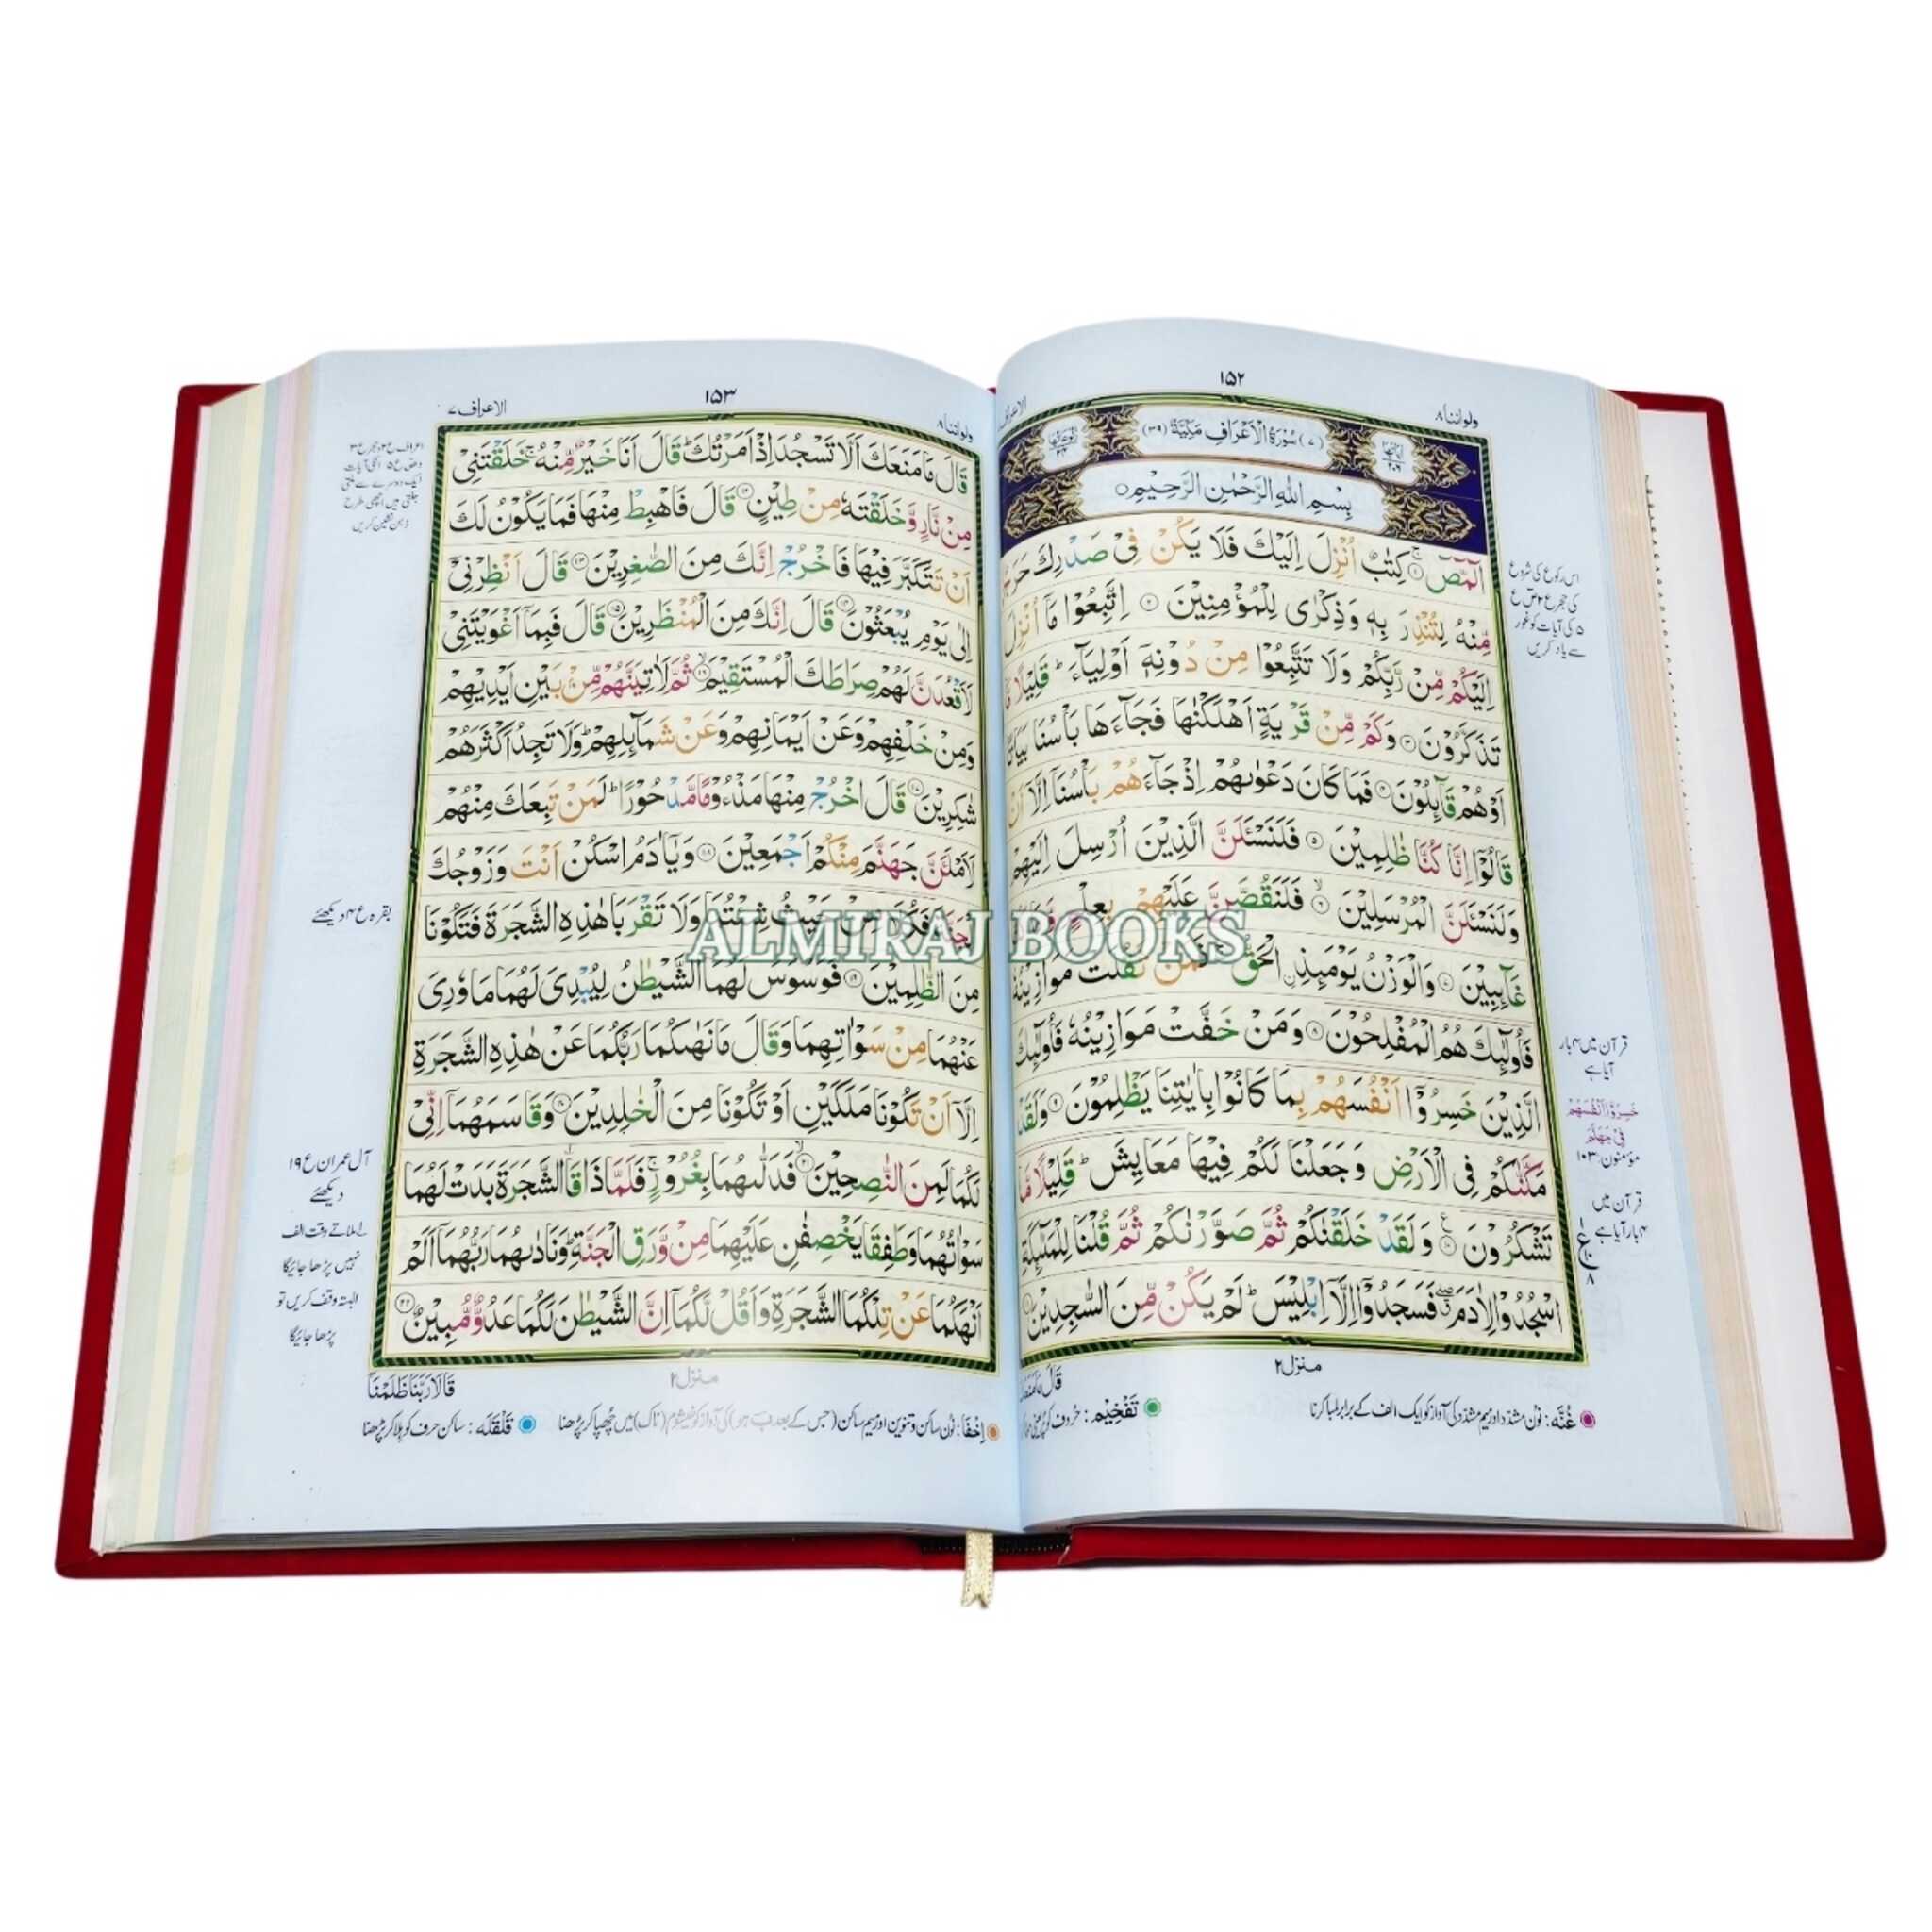 ١٥٢
ولواننا ٨
(٧) سُوْرَةُ الْاَعْرَافِ مَكِّيَّةٌ (٣٩)
بِسْمِ اللهِ الرَّحْمٰنِ الرَّحِيْمِ
الٓمّٓصٓ ۚ۝١ كِتٰبٌ اُنْزِلَ اِلَيْكَ فَلَا يَكُنْ فِيْ صَدْرِكَ حَرَجٌ
مِّنْهُ لِتُنْذِرَ بِهٖ وَذِكْرٰى لِلْمُؤْمِنِيْنَ ۝٢ اِتَّبِعُوْا مَآ اُنْزِلَ
اِلَيْكُمْ مِّنْ رَّبِّكُمْ وَلَا تَتَّبِعُوْا مِنْ دُوْنِهٖٓ اَوْلِيَآءَ ؕ قَلِيْلًا مَّا
تَذَكَّرُوْنَ ۝٣ وَكَمْ مِّنْ قَرْيَةٍ اَهْلَكْنٰهَا فَجَآءَهَا بَاْسُنَا بَيَاتًا
اَوْهُمْ قَآئِلُوْنَ ۝٤ فَمَا كَانَ دَعْوٰىهُمْ اِذْ جَآءَهُمْ بَاْسُنَآ اِلَّآ اَنْ
قَالُوْٓا اِنَّا كُنَّا ظٰلِمِيْنَ ۝٥ فَلَنَسْـَٔلَنَّ الَّذِيْنَ اُرْسِلَ اِلَيْهِمْ
وَلَنَسْـَٔلَنَّ الْمُرْسَلِيْنَ ۙ۝٦ فَلَنَقُصَّنَّ عَلَيْهِمْ بِعِلْمٍ
غَآئِبِيْنَ ۝٧ وَالْوَزْنُ يَوْمَئِذِ ِۨالْحَقُّ ۚ فَمَنْ ثَقُلَتْ مَوَازِيْنُهٗ
فَاُولٰٓئِكَ هُمُ الْمُفْلِحُوْنَ ۝٨ وَمَنْ خَفَّتْ مَوَازِيْنُهٗ فَاُولٰٓئِكَ
الَّذِيْنَ خَسِرُوْٓا اَنْفُسَهُمْ بِمَا كَانُوْا بِاٰيٰتِنَا يَظْلِمُوْنَ ۝٩ وَلَقَدْ
مَكَّنّٰكُمْ فِي الْاَرْضِ وَجَعَلْنَا لَكُمْ فِيْهَا مَعَايِشَ ؕ قَلِيْلًا مَّا
تَشْكُرُوْنَ ۝١٠ وَلَقَدْ خَلَقْنٰكُمْ ثُمَّ صَوَّرْنٰكُمْ ثُمَّ قُلْنَا لِلْمَلٰٓئِكَةِ
اسْجُدُوْا لِاٰدَمَ فَسَجَدُوْٓا اِلَّآ اِبْلِيْسَ ؕ لَمْ يَكُنْ مِّنَ السّٰجِدِيْنَ
اس رکوع کی شروع
کی حجر ع ٢ ص ع
٥ کی آیات کو غور
سے یاد کریں
قرآن میں ٣ بار
آیا ہے
خَسِرُوْٓا اَنْفُسَهُمْ
فِيْ جَهَنَّمَ
مؤمنون: ١٠٣
قرآن میں
٤ بار آیا ہے
ع
٨
منزل ٢
غُنَّه : نون مشدد اور میم مشدد کی آواز کو ایک الف کے برابر لمبا کرنا
تَفْخِيْم : حروف کو پُر یعنی
١٥٣
ولواننا ٨
الاعراف ٧
قَالَ مَا مَنَعَكَ اَلَّا تَسْجُدَ اِذْ اَمَرْتُكَ ؕ قَالَ اَنَا خَيْرٌ مِّنْهُ ۚ خَلَقْتَنِيْ
مِنْ نَّارٍ وَّخَلَقْتَهٗ مِنْ طِيْنٍ ۝١٢ قَالَ فَاهْبِطْ مِنْهَا فَمَا يَكُوْنُ لَكَ
اَنْ تَتَكَبَّرَ فِيْهَا فَاخْرُجْ اِنَّكَ مِنَ الصّٰغِرِيْنَ ۝١٣ قَالَ اَنْظِرْنِيْٓ
اِلٰى يَوْمِ يُبْعَثُوْنَ ۝١٤ قَالَ اِنَّكَ مِنَ الْمُنْظَرِيْنَ ۝١٥ قَالَ فَبِمَآ اَغْوَيْتَنِيْ
لَاَقْعُدَنَّ لَهُمْ صِرَاطَكَ الْمُسْتَقِيْمَ ۙ۝١٦ ثُمَّ لَاٰتِيَنَّهُمْ مِّنْۢ بَيْنِ اَيْدِيْهِمْ
وَمِنْ خَلْفِهِمْ وَعَنْ اَيْمَانِهِمْ وَعَنْ شَمَآئِلِهِمْ ؕ وَلَا تَجِدُ اَكْثَرَهُمْ
شٰكِرِيْنَ ۝١٧ قَالَ اخْرُجْ مِنْهَا مَذْءُوْمًا مَّدْحُوْرًا ؕ لَمَنْ تَبِعَكَ مِنْهُمْ
لَاَمْلَئَنَّ جَهَنَّمَ مِنْكُمْ اَجْمَعِيْنَ ۝١٨ وَيٰٓاٰدَمُ اسْكُنْ اَنْتَ وَزَوْجُكَ
الْجَنَّةَ فَكُلَا مِنْ حَيْثُ شِئْتُمَا وَلَا تَقْرَبَا هٰذِهِ الشَّجَرَةَ فَتَكُوْنَا
مِنَ الظّٰلِمِيْنَ ۝١٩ فَوَسْوَسَ لَهُمَا الشَّيْطٰنُ لِيُبْدِيَ لَهُمَا مَا وٗرِيَ
عَنْهُمَا مِنْ سَوْاٰتِهِمَا وَقَالَ مَا نَهٰىكُمَا رَبُّكُمَا عَنْ هٰذِهِ الشَّجَرَةِ
اِلَّآ اَنْ تَكُوْنَا مَلَكَيْنِ اَوْ تَكُوْنَا مِنَ الْخٰلِدِيْنَ ۝٢٠ وَقَاسَمَهُمَآ اِنِّيْ
لَكُمَا لَمِنَ النّٰصِحِيْنَ ۙ۝٢١ فَدَلّٰىهُمَا بِغُرُوْرٍ ۚ فَلَمَّا ذَاقَا الشَّجَرَةَ بَدَتْ لَهُمَا
سَوْاٰتُهُمَا وَطَفِقَا يَخْصِفٰنِ عَلَيْهِمَا مِنْ وَّرَقِ الْجَنَّةِ ؕ وَنَادٰىهُمَا رَبُّهُمَآ اَلَمْ
اَنْهَكُمَا عَنْ تِلْكُمَا الشَّجَرَةِ وَاَقُلْ لَّكُمَآ اِنَّ الشَّيْطٰنَ لَكُمَا عَدُوٌّ مُّبِيْنٌ ۝٢٢
بقرہ ع ٤ دیکھئے
آل عمران ع ١٩
دیکھئے
ملاتے وقت الف
نہیں پڑھا جائیگا
البتہ وقف کریں تو
پڑھا جائیگا
منزل ٢
قَالَا رَبَّنَا ظَلَمْنَآ
اِخْفَا : نون ساکن و تنوین اور میم ساکن (جس کے بعد ب ہو) کی آواز کو خیشوم (ناک) میں چھپا کر پڑھنا
قَلْقَلَه : ساکن حرف کو ہلا کر پڑھنا
ALMIRAJ BOOKS